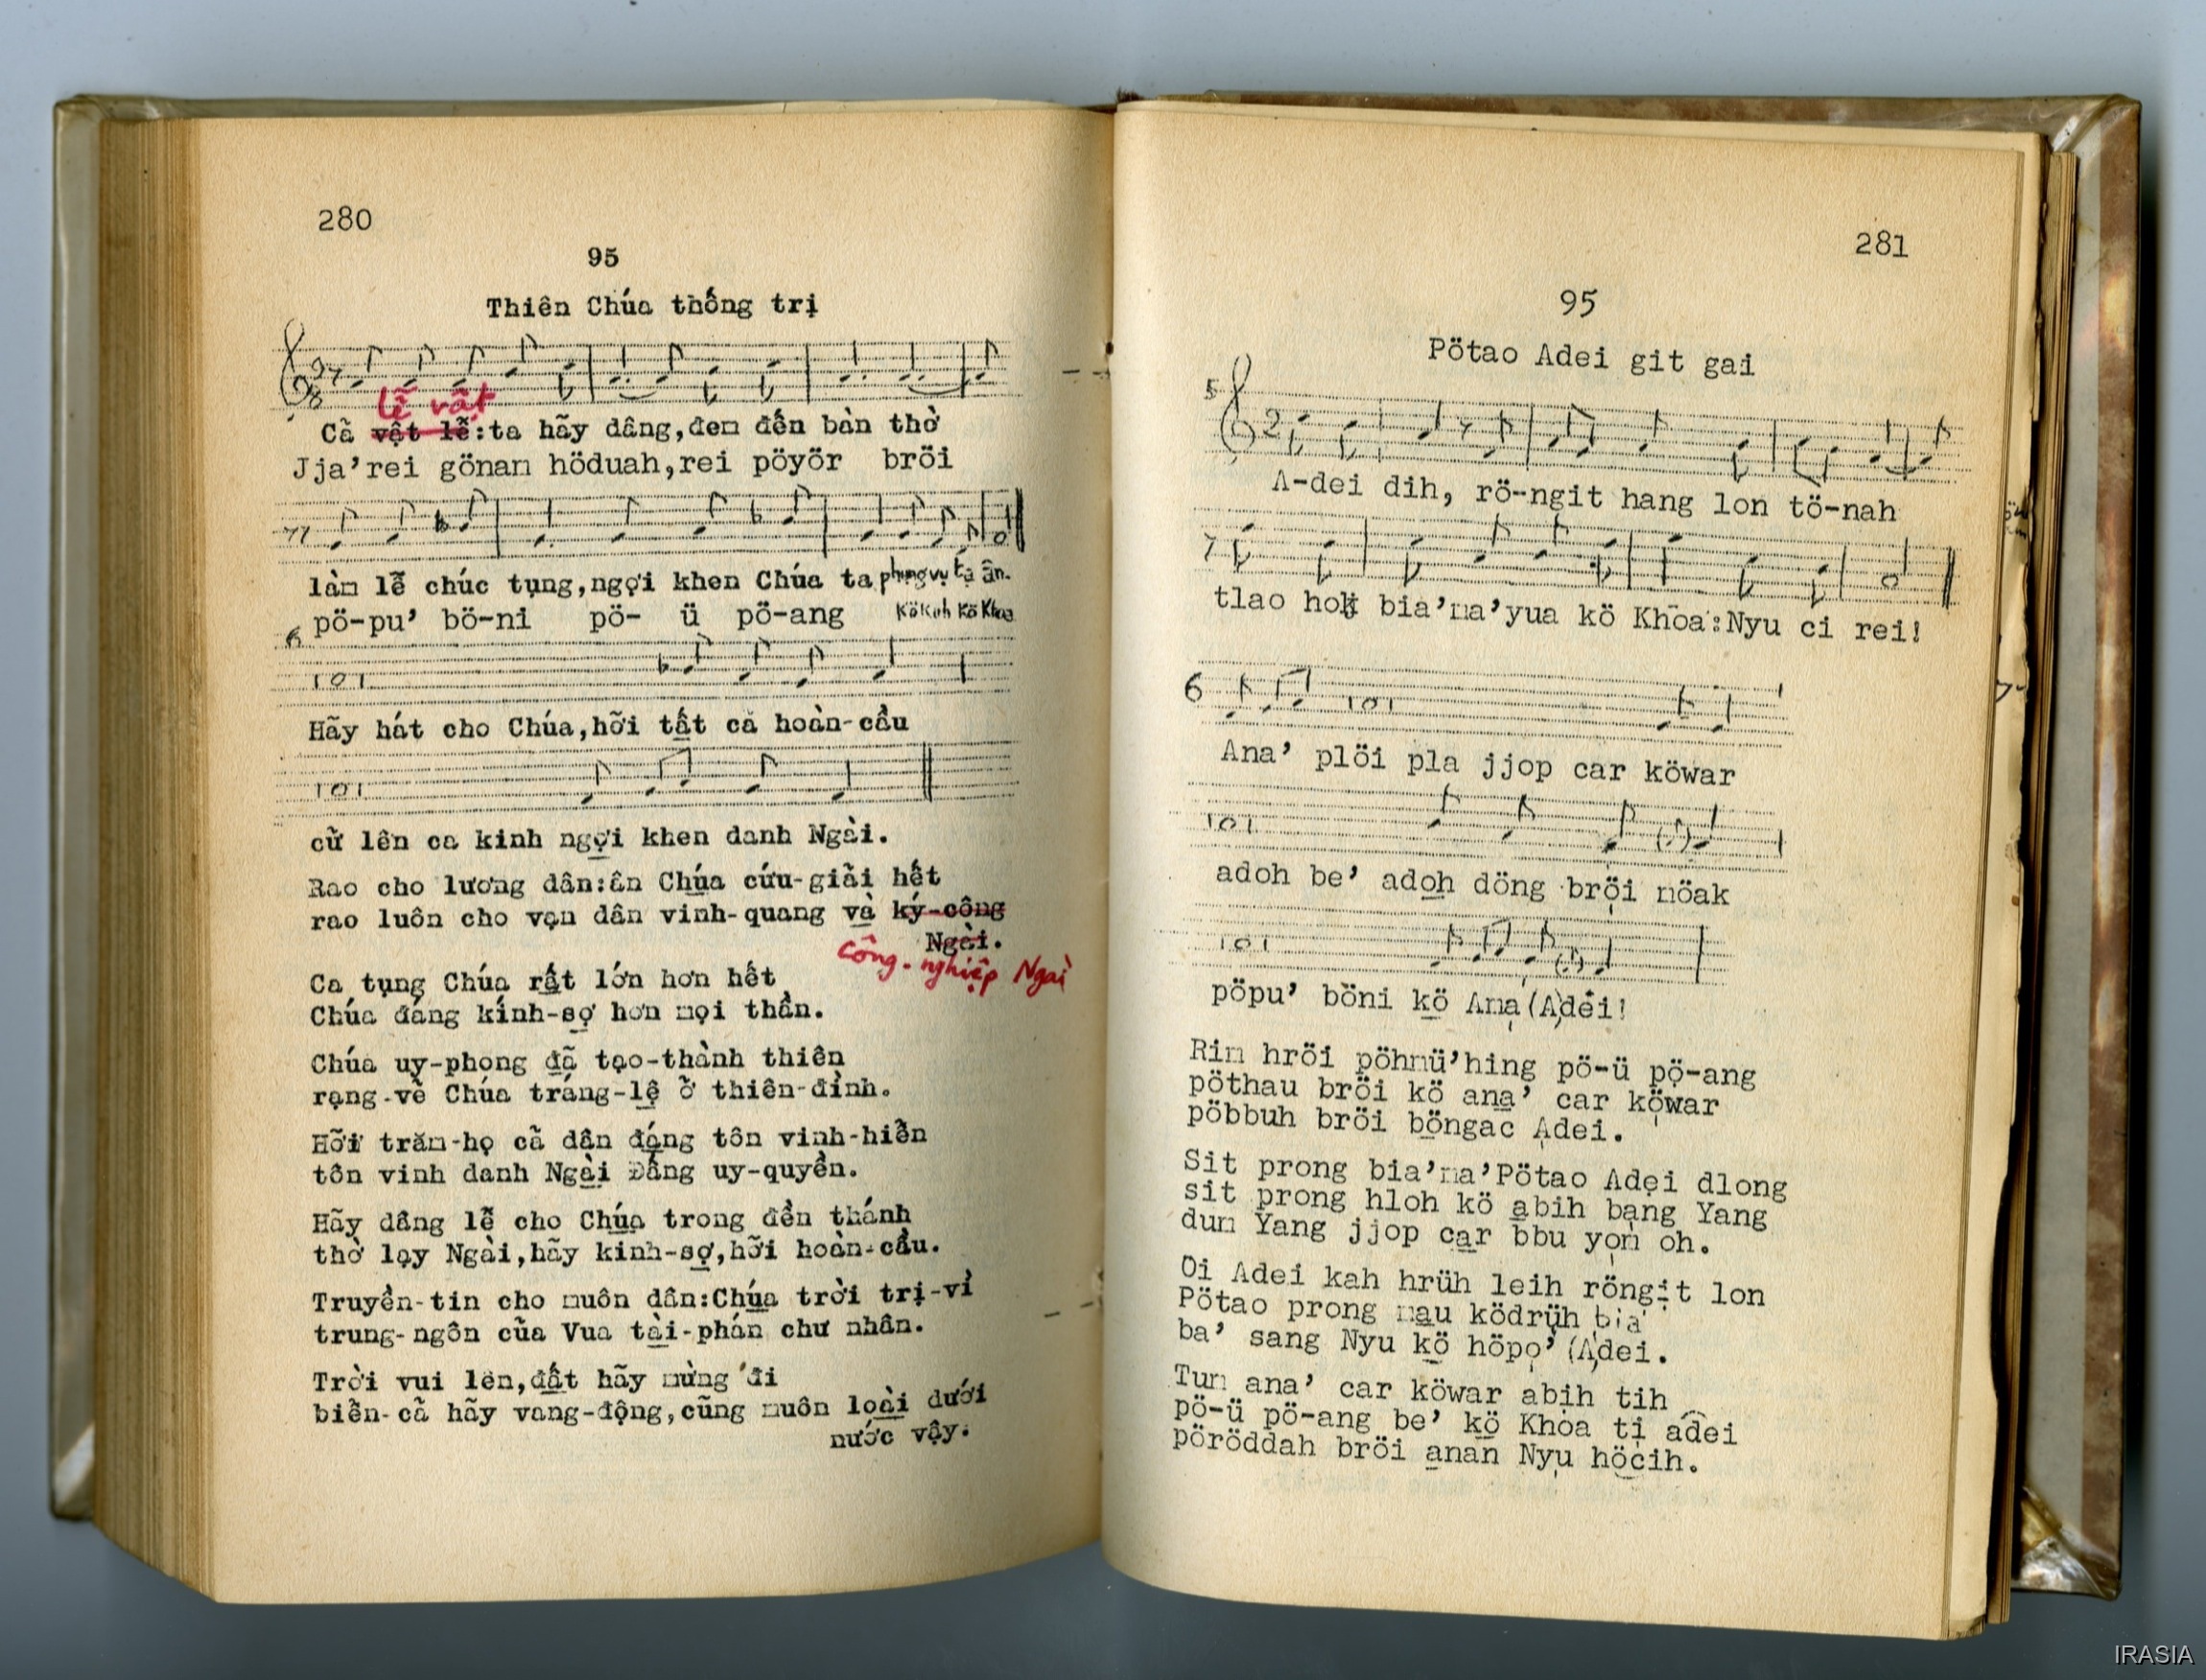 280
95
Thiên Chúa thống trị
lễ vật
Cả vật lễ:ta hãy dâng,đem đến bàn thờ
Jja’rei gönam höduah,rei pöyör bröi
làm lễ chúc tụng,ngợi khen Chúa ta phụng vụ tạ ân.
pö-pu’ bö-ni pö- ü pö-ang Kökuh kö Khoa
6
Hãy hát cho Chúa,hỡi tất cả hoàn-cầu
cử lên ca kinh ngợi khen danh Ngài.
Rao cho lương dân:ân Chúa cứu-giải hết
rao luôn cho vạn dân vinh-quang và ký-công
Ngài.
công-nghiệp Ngài
Ca tụng Chúa rất lớn hơn hết
Chúa đáng kính-sợ hơn mọi thần.
Chúa uy-phong đã tạo-thành thiên
rạng-vẽ Chúa tráng-lệ ở thiên-đình.
Hỡi trăm-họ cả dân đáng tôn vinh-hiển
tôn vinh danh Ngài Đấng uy-quyền.
Hãy dâng lễ cho Chúa trong đền thánh
thờ lạy Ngài,hãy kinh-sợ,hỡi hoàn-cầu.
Truyền-tin cho muôn dân:Chúa trời trị-vì
trung-ngôn của Vua tài-phán chư nhân.
Trời vui lên,đất hãy mừng đi
biển-cả hãy vang-động,cũng muôn loài dưới
nước vậy.
281
95
Pötao Adei git gai
5
2
A-dei dih, rö-ngit hang lon tö-nah
tlao hok bia’ma’yua kö Khoa:Nyu ci rei!
6
Ana’ plöi pla jjop car köwar
adoh be’ adoh döng bröi nöak
pöpu’ böni kö Ama (A)dei!
Rim hröi pöhmü’hing pö-ü pö-ang
pöthau bröi kö ana’ car köwar
pöbbuh bröi böngac Adei.
Sit prong bia’ma’Pötao Adei dlong
sit prong hloh kö abih bang Yang
dum Yang jjop car bbu yom oh.
Oi Adei kah hrüh leih röngit lon
Pötao prong mau ködrüh bia’
ba’ sang Nyu kö höpo’ (A)dei.
Tum ana’ car köwar abih tih
pö-ü pö-ang be’ kö Khoa ti adei
pöröddah bröi anan Nyu höcih.
IRASIA